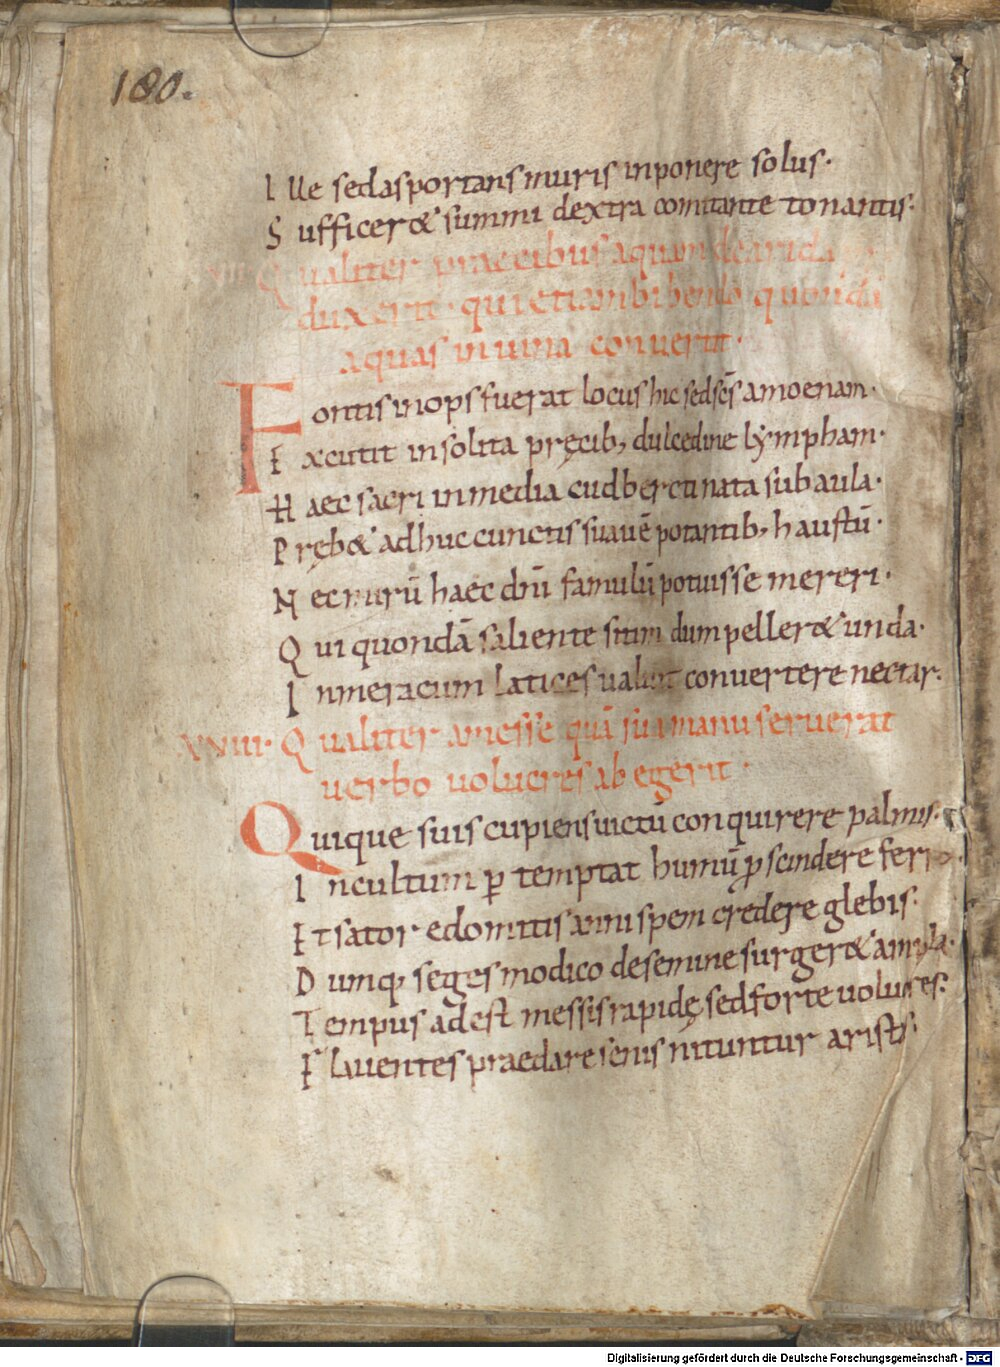 180.
Ille sed asportans muris inponere solus·
Sufficer& summi dextra comitante tonantis·
Qualiter praecibus aquam de arida
duxerit· qui etiam bibendo quondā
aquas in vina converit·
Fontis inops fuerat locus hic sed scs̄ amoenam·
Excutit insolita pręcib; dulcedine lẏmpham·
Haec sacri in media cudbercti nata sub aula·
Pręb& adhuc cunctis suavē potantib; haustū·
Nec mirū haec dn̄i famulū potuisse mereri·
Qui quondā saliente sitim dum peller& unda·
In meracum latices valuit convertere nectar·
XVIII· Qualiter a messe quā sua manu serverat
verbo volucres abegerit·
Quique suis cupiens victū conquirere palmis·
Incultum ꝑ temptat humū ꝓscindere ferro·
Et sator edomitis anni spem credere glebis·
Dumq; seges modico de semine surger& ampla·
Tempus adest messis rapidę sed forte volucres·
Flaventes praedare senis nituntur aristas·
Digitalisierung gefördert durch die Deutsche Forschungsgemeinschaft - DFG